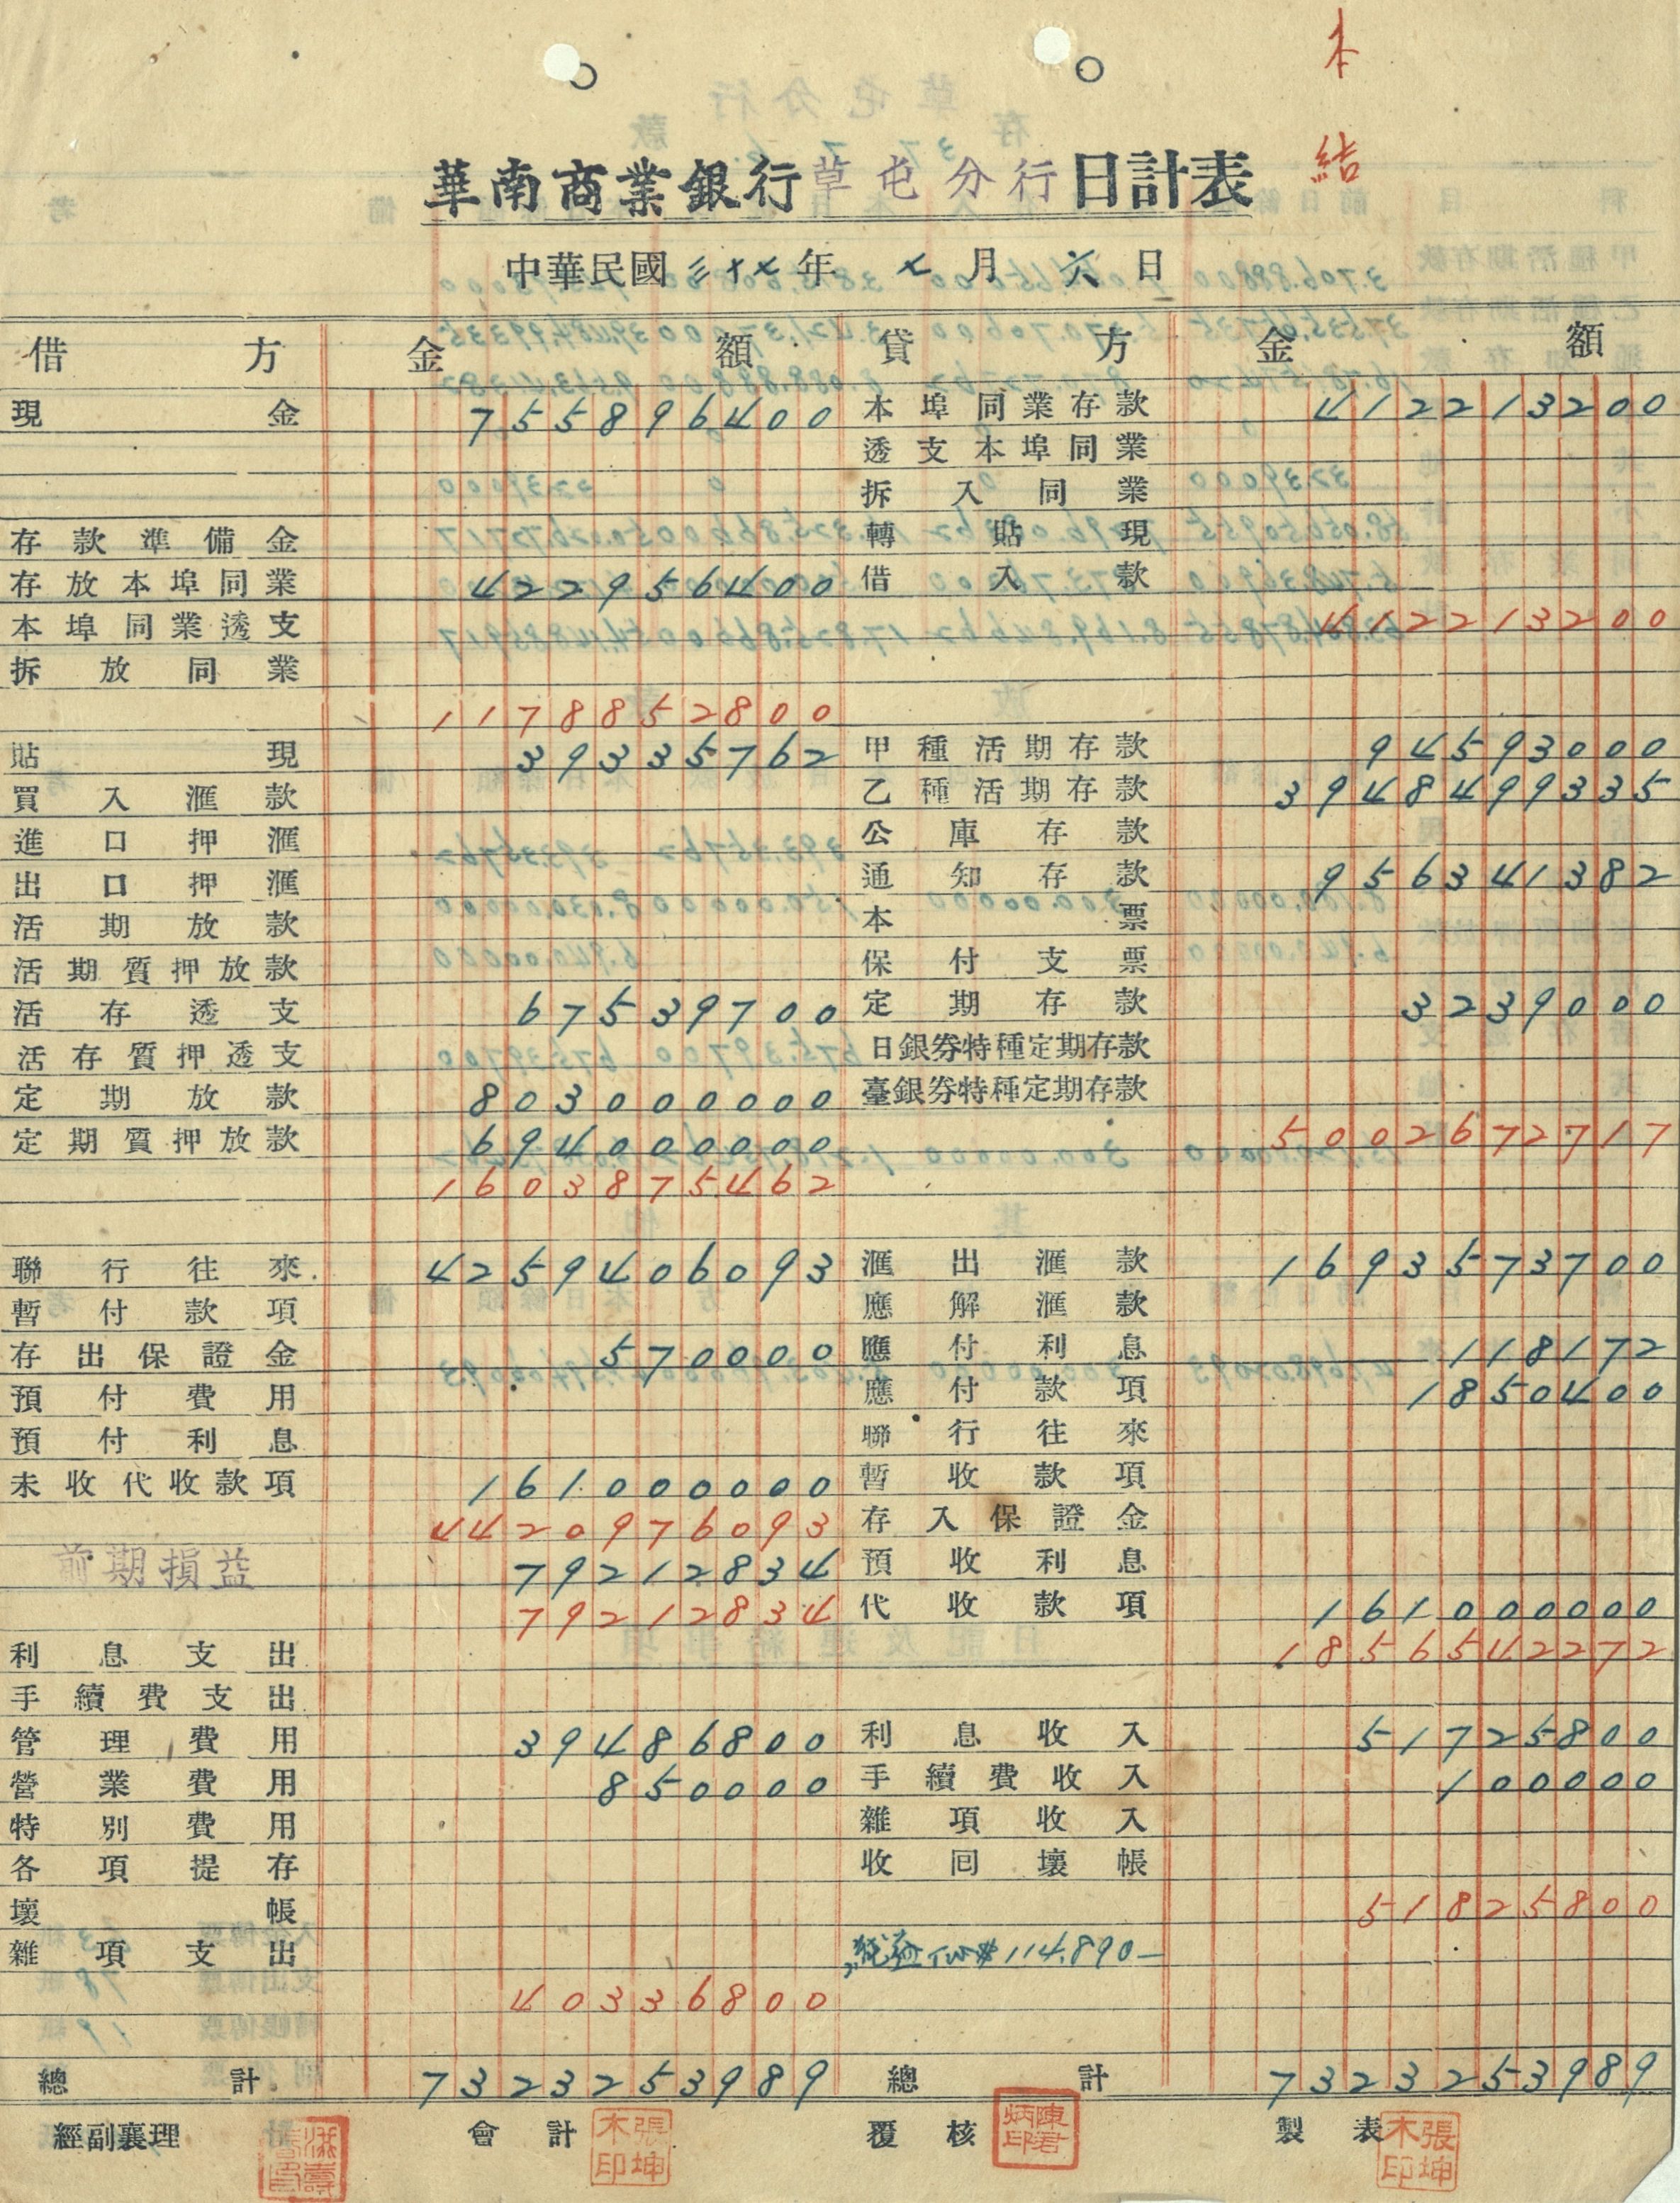 本
結
華南商業銀行草屯分行日計表
中華民國三十七年 七月 六日
借方 金額 貸方 金額
現金 755896400 本埠同業存款 412213200
透支本埠同業
拆入同業
存款準備金 轉貼現
存放本埠同業 422956400 借入款
本埠同業透支 412213200
拆放同業
1178852800
貼現 39335762 甲種活期存款 94593000
買入滙款 乙種活期存款 3948499335
進口押滙 公庫存款
出口押滙 通知存款 956341382
活期放款 本票
活期質押放款 保付支票
活存透支 67539700 定期存款 3239000
活存質押透支 日銀券特種定期存款
定期放款 803000000 臺銀券特種定期存款
定期質押放款 694000000 5002672717
1603875462
聯行往來 4259406093 滙出滙款 1693573700
暫付款項 應解滙款
存出保證金 570000 應付利息 118172
預付費用 應付款項 1850400
預付利息 聯行往來
未收代收款項 161000000 暫收款項
4420976093 存入保證金
前期損益 79212834 預收利息
79212834 代收款項 161000000
利息支出 1856542272
手續費支出
管理費用 39486800 利息收入 51725800
營業費用 850000 手續費收入 100000
特別費用 雜項收入
各項提存 收回壞帳
壞帳 51825800
雜項支出 純益 114.890-
40336800
總計 7323253989 總計 7323253989
經副襄理 會計 張坤木印 覆核 陳君炳印 製表 張坤木印